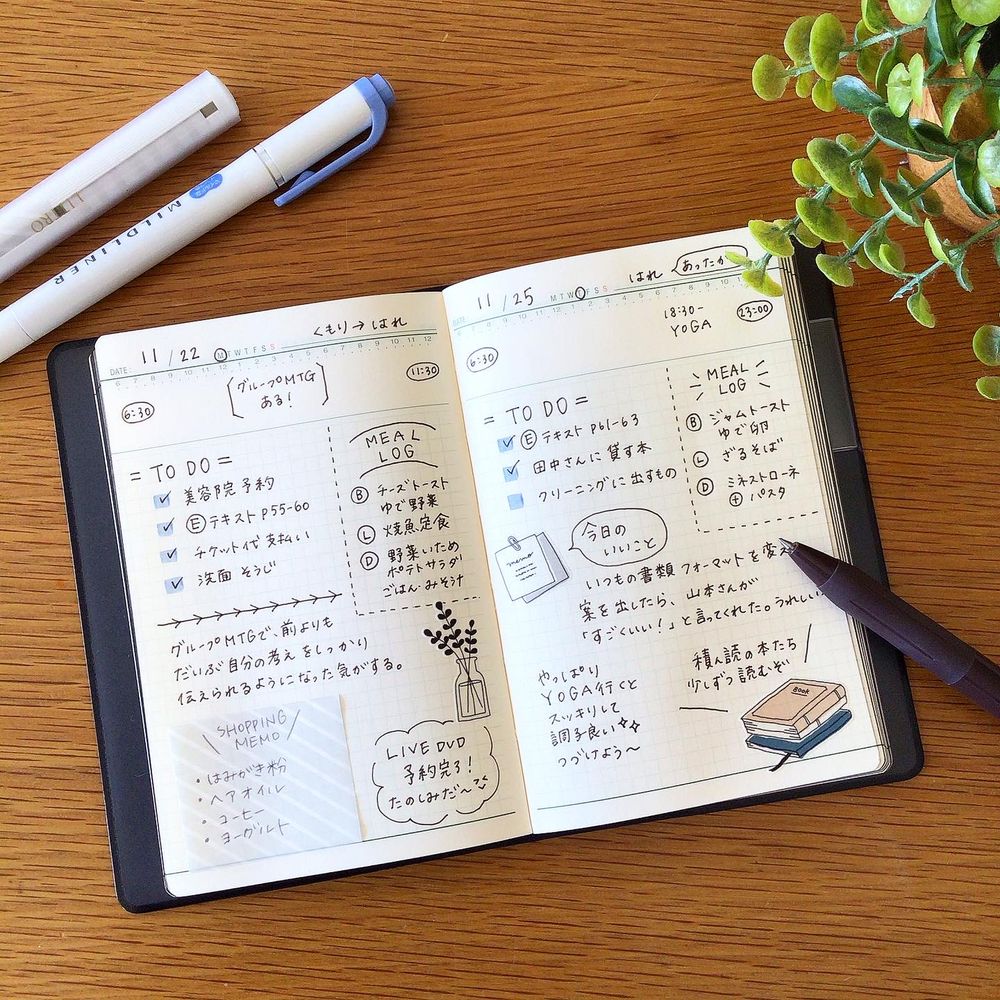 LUPRO
MILDLINER
DATE 11/22 M T W T F S S くもり→はれ
6 7 8 9 10 11 12 1 2 3 4 5 6 7 8 9 10 11 12
6:30
グループMTG
ある!
11:30
= TO DO =
美容院予約
Ⓔテキスト P55-60
チケット代支払い
洗面そうじ
MEAL
LOG
Ⓑ チーズトースト
ゆで野菜
Ⓛ 焼魚定食
Ⓓ 野菜いため
ポテトサラダ
ごはん・みそ汁
グループMTGで、前よりも
だいぶ自分の考えをしっかり
伝えられるようになった気がする。
SHOPPING
MEMO
・はみがき粉
・ヘアオイル
・コーヒー
・ヨーグルト
LIVE DVD
予約完了!
たのしみだ〜
DATE 11/25 M T W T F S S はれ あったか
6:30
18:30-
YOGA
23:00
= TO DO =
Ⓔテキスト P61-63
田中さんに貸す本
クリーニングに出すもの
MEAL
LOG
Ⓑ ジャムトースト
ゆで卵
Ⓛ ざるそば
Ⓓ ミネストローネ
⊕ パスタ
memo
今日の
いいこと
いつもの書類フォーマットを変え
案を出したら、山本さんが
「すごくいい!」と言ってくれた。うれしい
やっぱり
YOGA行くと
スッキリして
調子良い
つづけよう〜
積ん読の本たち
少しずつ読むぞ
Book